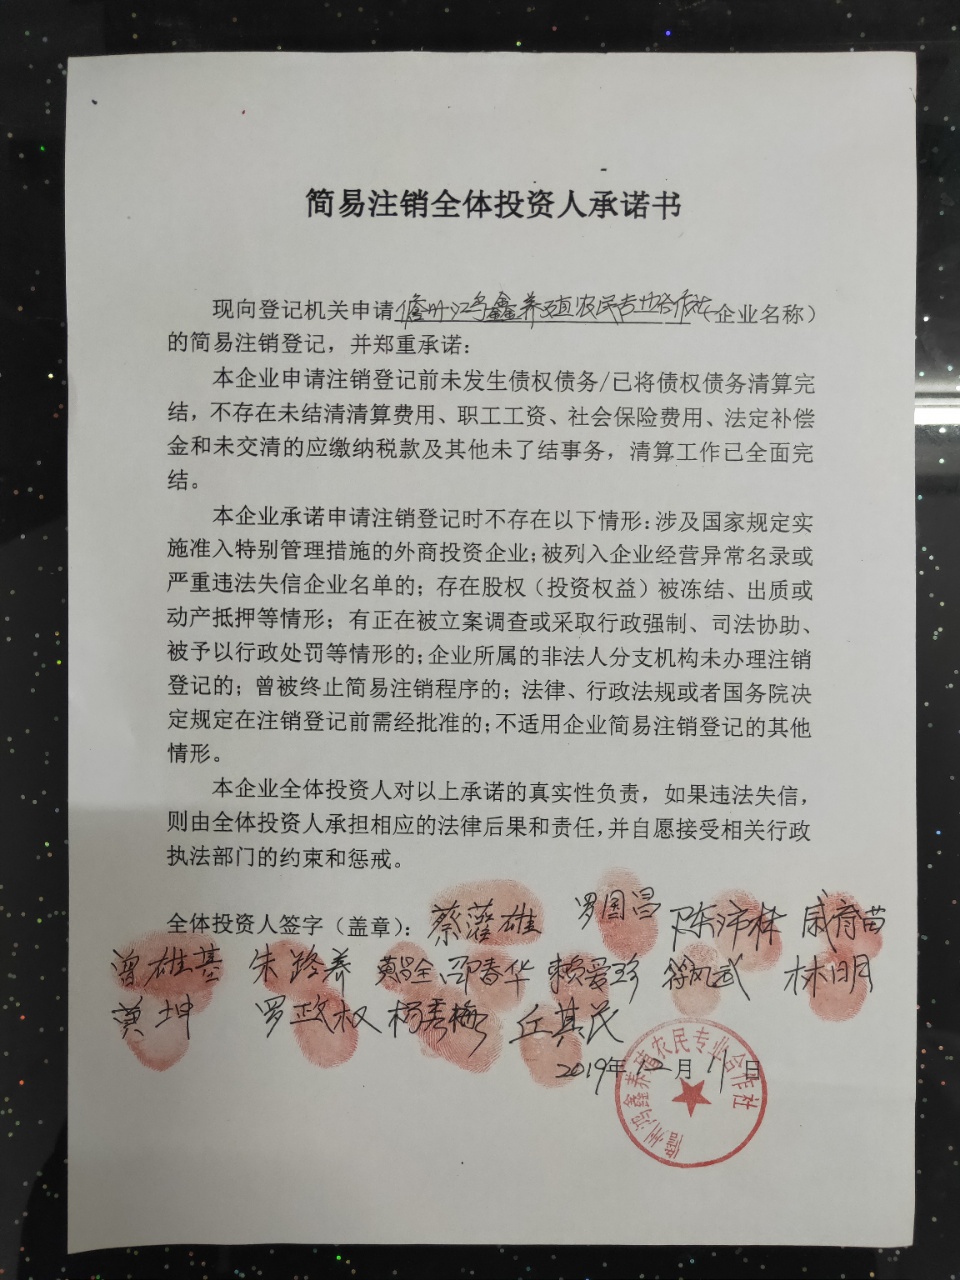 简易注销全体投资人承诺书
现向登记机关申请儋州鸿鑫养殖农民专业合作社（企业名称）
的简易注销登记，并郑重承诺：
本企业申请注销登记前未发生债权债务/已将债权债务清算完
结，不存在未结清清算费用、职工工资、社会保险费用、法定补偿
金和未交清的应缴纳税款及其他未了结事务，清算工作已全面完
结。
本企业承诺申请注销登记时不存在以下情形：涉及国家规定实
施准入特别管理措施的外商投资企业；被列入企业经营异常名录或
严重违法失信企业名单的；存在股权（投资权益）被冻结、出质或
动产抵押等情形；有正在被立案调查或采取行政强制、司法协助、
被予以行政处罚等情形的；企业所属的非法人分支机构未办理注销
登记的；曾被终止简易注销程序的；法律、行政法规或者国务院决
定规定在注销登记前需经批准的；不适用企业简易注销登记的其他
情形。
本企业全体投资人对以上承诺的真实性负责，如果违法失信，
则由全体投资人承担相应的法律后果和责任，并自愿接受相关行政
执法部门的约束和惩戒。
全体投资人签字（盖章）：蔡 雄 罗国昌 陈沛林 戚育苗
曾雄基 朱路养 黄昌全 邵春华 赖爱珍 符 武 林明
莫坤 罗政权 杨秀梅 丘其民
2019年12月11日
儋州鸿鑫养殖农民专业合作社